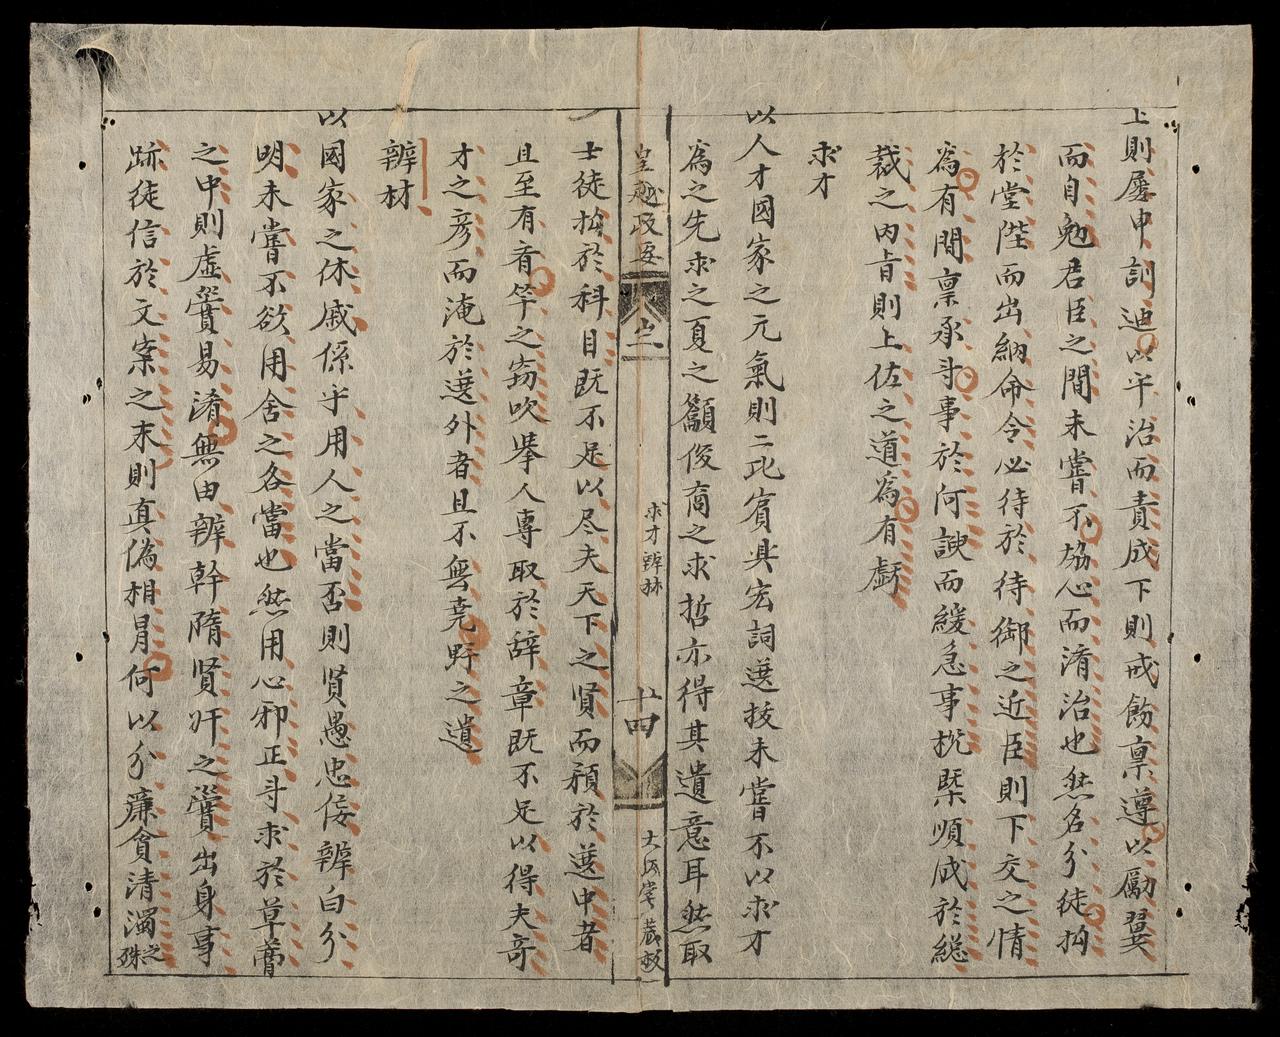 上則屢申訓迪以平治而責成下則戒飭禀遵以勵翼
而自勉君臣之間未嘗不協心而淯治也然名分徒拘
於堂陛而出納命令必待於待御之近臣則下交之情
為有間禀承斗事於何諛而緩急事梲槩順成於総
裁之内旨則上佐之道為有虧
求才
以人才國家之元氣則二比賔具宏詞選扳未嘗不以求才
為之先求之夏之籲俊商之求哲亦得其遺意耳然取
皇越政要
卷之二
求才辨材
十四
大板堂蔵板
士徒拘於科目既不足以尽夫天下之賢而預於選中者
且至有斉竿之窃吹挙人專取於辞章既不足以得夫竒
才之彦而淹於選外者且不無尭野之遺
辨材
以國家之休戚係乎用人之當否則賢愚忠佞辨白分
明未嘗不欲用舍之各當也然用心邪正斗求於草薦
之中則虛實易淆無由辨幹隋賢奸之實出身事
跡徒信於文案之末則真偽相冐何以分亷貪清濁之殊